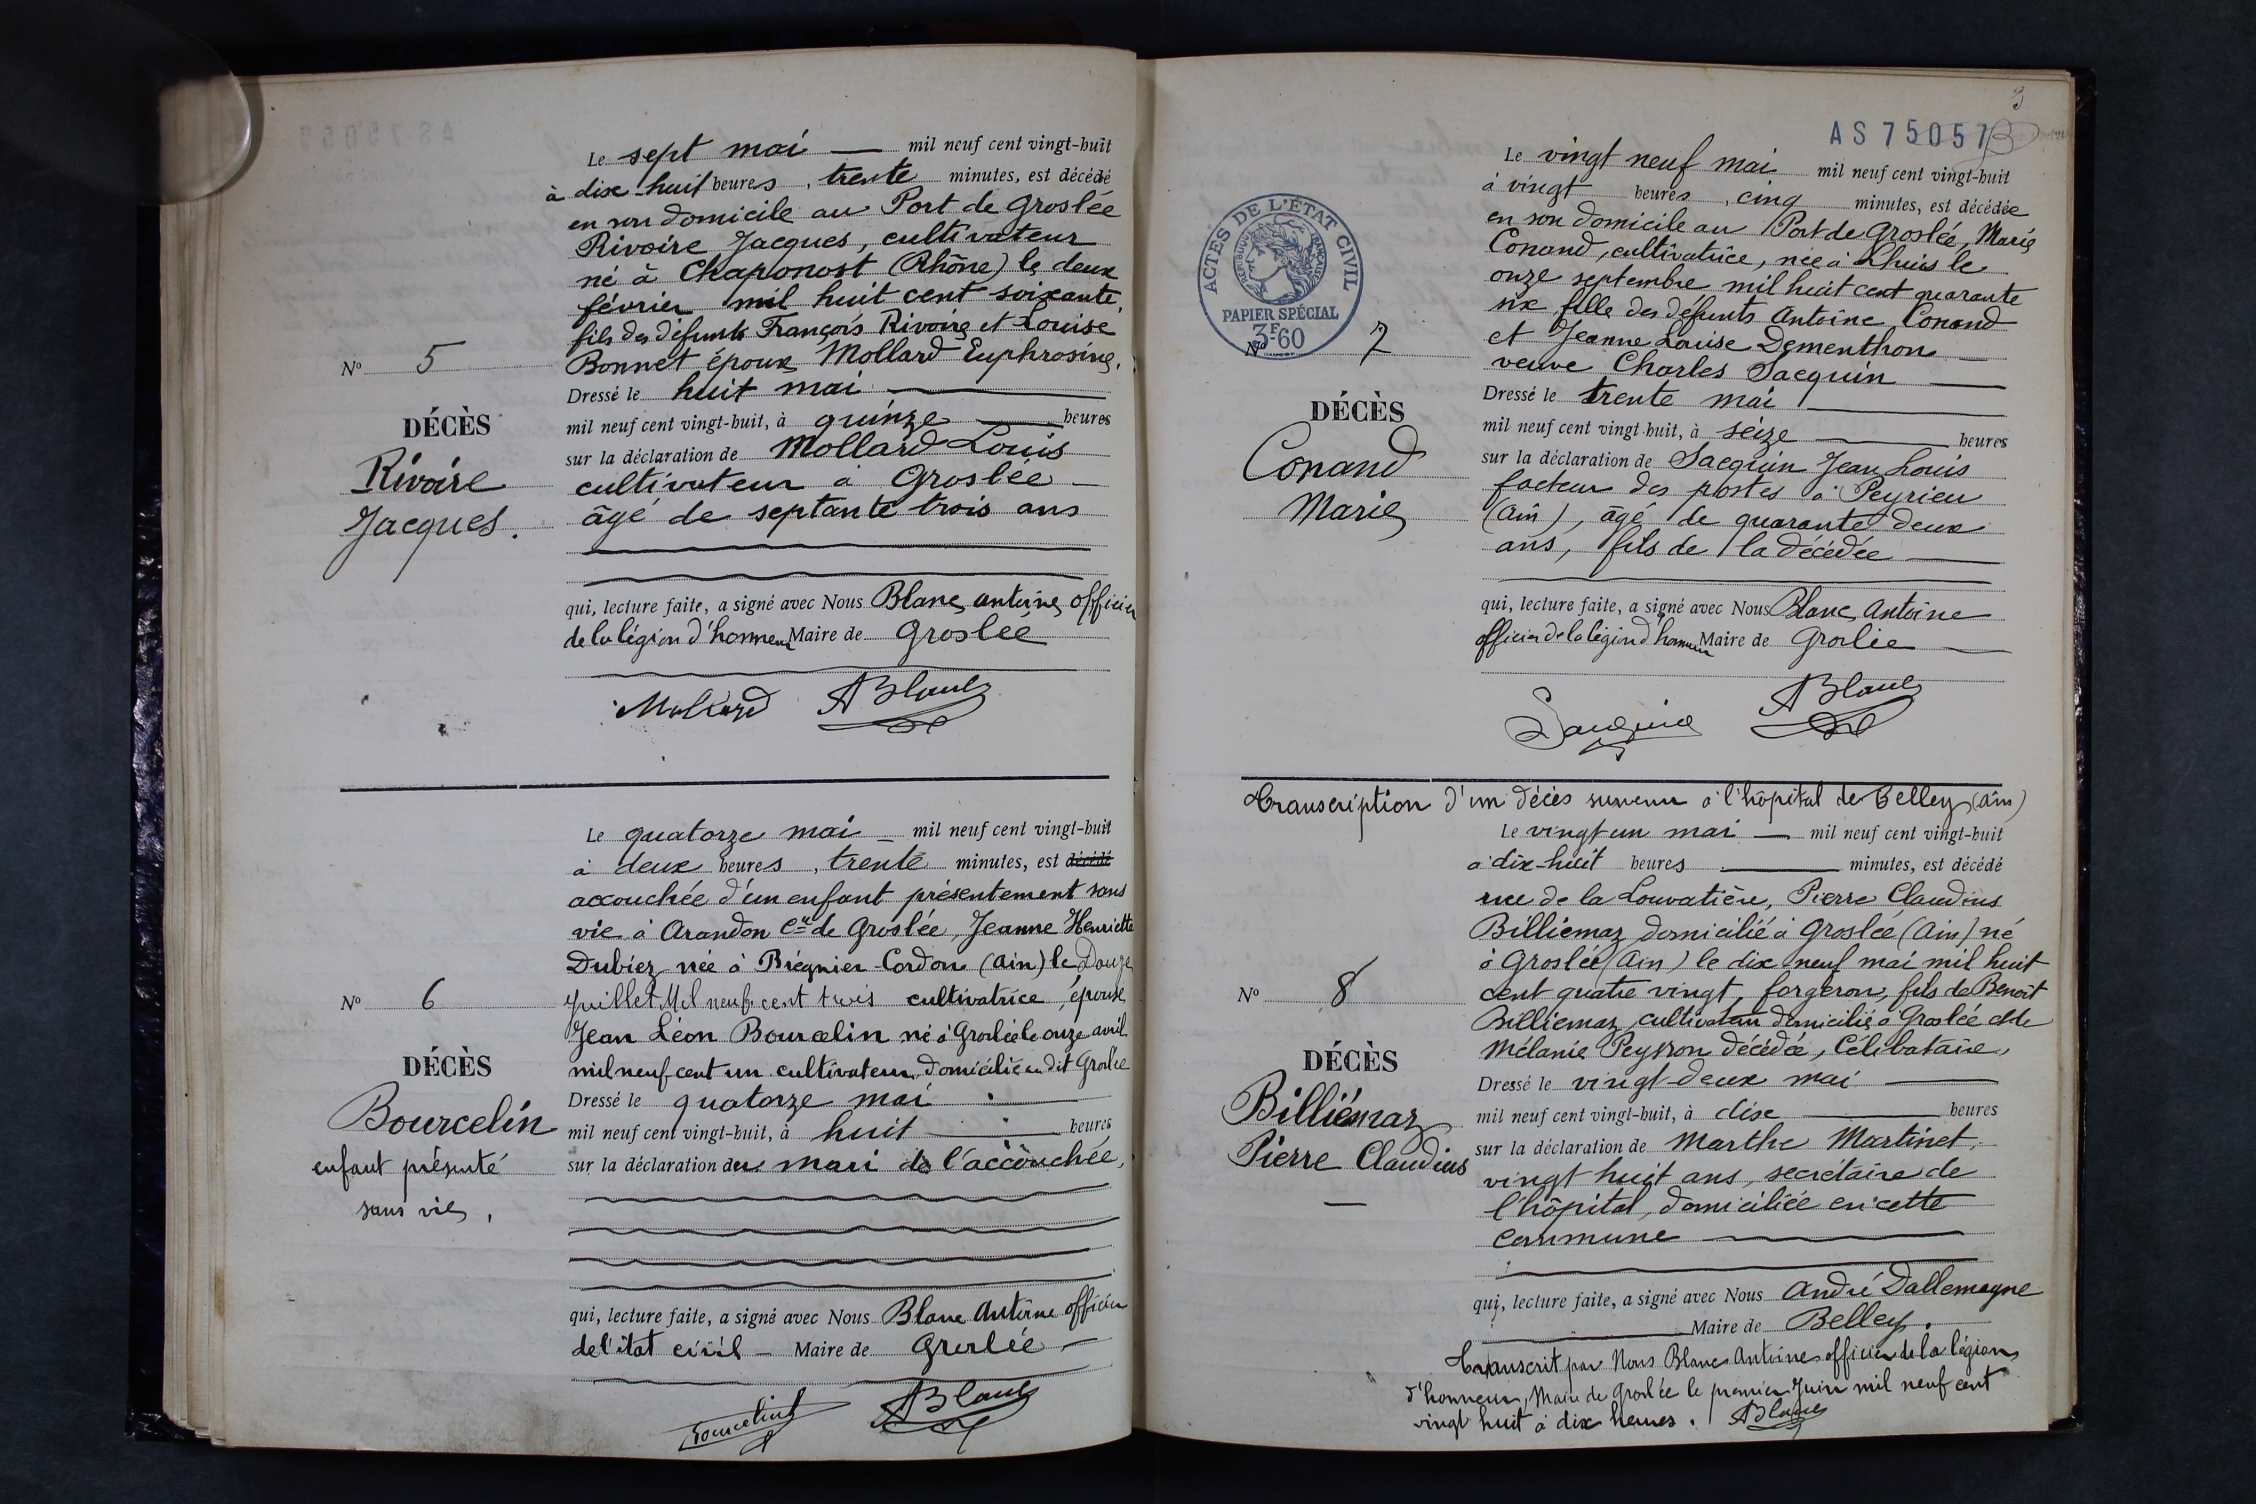 Le sept mai — mil neuf cent vingt-huit
à dix-huit heures, trente minutes, est décédé
en son domicile au Port de Groslée
Rivoire Jacques, cultivateur
né à Chaponost (Rhône) le deux
février mil huit cent soixante,
fils des défunts François Rivoire et Louise
Bonnet époux Mollard Euphrosine.
Nº 5
Dressé le huit mai
mil neuf cent vingt-huit, à quinze heures
DÉCÈS
sur la déclaration de Mollard Louis
Rivoire
cultivateur à Groslée
Jacques.
âgé de septante trois ans
qui, lecture faite, a signé avec Nous Blanc Antoine officier
de la légion d'honneur Maire de Groslée
Mollard ABlanc
Le quatorze mai — mil neuf cent vingt-huit
à deux heures, trente minutes, est décédé
accouchée d'un enfant présentement sans
vie à Arandon Cne de Groslée, Jeanne Henriette
Dubiez née à Brégnier-Cordon (Ain) le Douze
Nº 6
Juillet Mil neuf cent trois cultivatrice, épouse
Jean Léon Bourcelin né à Groslée le onze avril
DÉCÈS
mil neuf cent un cultivateur domicilié au dit Groslée
Dressé le quatorze mai
Bourcelin
mil neuf cent vingt-huit, à huit heures
enfant présenté
sur la déclaration du mari de l'accouchée,
sans vie,
qui, lecture faite, a signé avec Nous Blanc Antoine officier
de l'état civil — Maire de Groslée
Bourcelin ABlanc
3
AS 75057
Le vingt neuf mai mil neuf cent vingt-huit
à vingt heures, cinq minutes, est décédée
en son domicile au Port de Groslée, Marie
Conand, cultivatrice, née à Lhuis le
onze septembre mil huit cent quarante
six fille des défunts Antoine Conand
et Jeanne Louise Dementhon
veuve Charles Sacquin
ACTES DE L'ÉTAT CIVIL
RÉPUBLIQUE FRANÇAISE
PAPIER SPÉCIAL
3F60
Nº 7
Dressé le trente mai
DÉCÈS
mil neuf cent vingt-huit, à seize heures
Conand
sur la déclaration de Sacquin Jean Louis
facteur des postes à Peyrieu
Marie
(Ain), âgé de quarante deux
ans, fils de la décédée
qui, lecture faite, a signé avec Nous Blanc Antoine
officier de la légion d'honneur Maire de Groslée
Sacquin ABlanc
Transcription d'un décès survenu à l'hôpital de Belley (Ain)
Le vingt un mai — mil neuf cent vingt-huit
à dix-huit heures minutes, est décédé
rue de la Louvatière, Pierre Claudius
Billiémaz domicilié à Groslée (Ain) né
à Groslée (Ain) le dix neuf mai mil huit
Nº 8
cent quatre vingt, forgeron, fils de Benoît
Billiémaz cultivateur domicilié à Groslée et de
DÉCÈS
Mélanie Peysson décédée, Célibataire,
Dressé le vingt-deux mai
Billiémaz
mil neuf cent vingt-huit, à dix heures
Pierre Claudius
sur la déclaration de Marthe Martinet,
vingt huit ans, secrétaire de
l'hôpital, domiciliée en cette
commune
qui, lecture faite, a signé avec Nous André Dallemagne
Maire de Belley.
Transcrit par Nous Blanc Antoine officier de la légion
d'honneur, Maire de Groslée le premier Juin mil neuf cent
vingt huit à dix heures. ABlanc